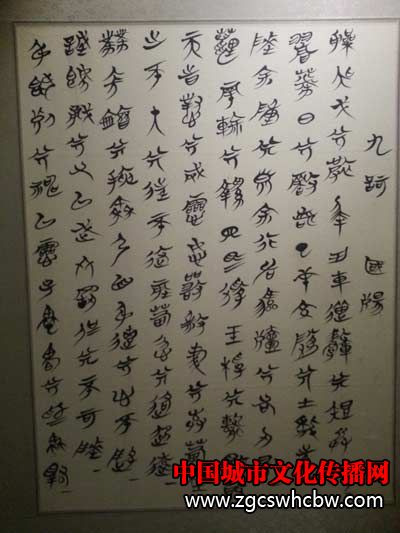 九歌 國殤
操吳戈兮被犀甲車錯轂兮短兵接
旌蔽日兮敵若雲矢交墜兮士爭先
凌余陣兮躐余行左驂殪兮右刃傷
霾兩輪兮縶四馬援玉枹兮擊鳴鼓
天時墜兮威靈怒嚴殺盡兮棄原野
出不入兮往不反平原忽兮路超遠
帶長劍兮挾秦弓首身離兮心不懲
誠既勇兮又以武終剛強兮不可凌
身既死兮神以靈子魂魄兮為鬼雄
中国城市文化传播网
www.zgcswhcbw.com